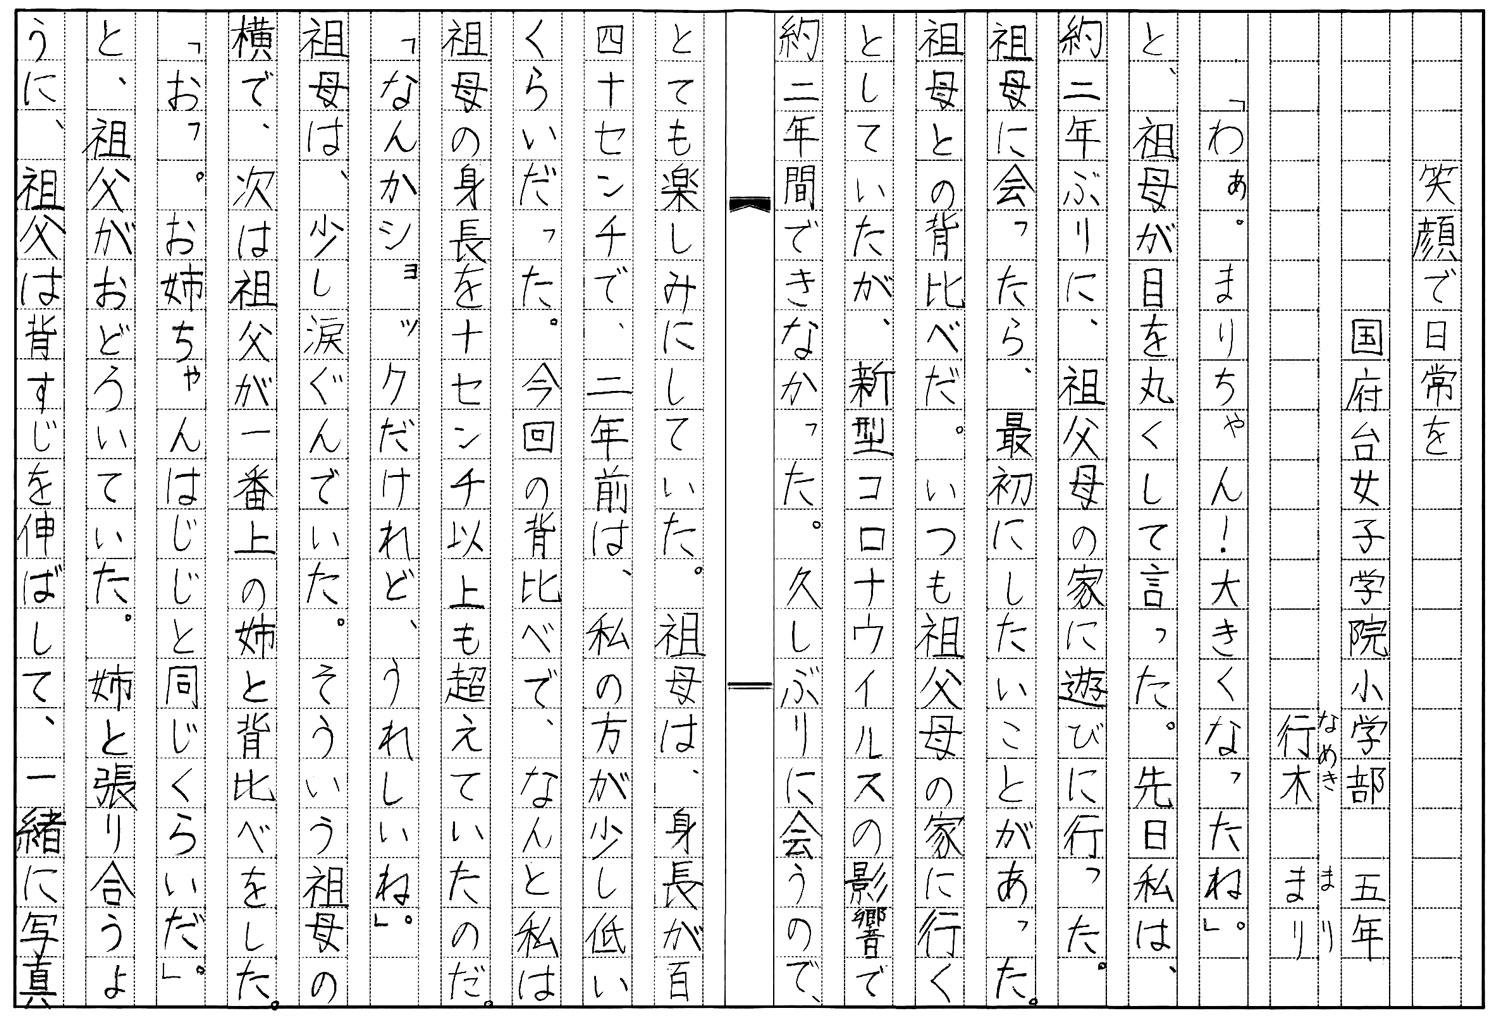 笑顔で日常を
国府台女子学院小学部　五年
なめき　まり
行木　まり
「わぁ。まりちゃん！大きくなったね」。
と、祖母が目を丸くして言った。先日私は、
約二年ぶりに、祖父母の家に遊びに行った。
祖母に会ったら、最初にしたいことがあった。
祖母との背比べだ。いつも祖父母の家に行く
としていたが、新型コロナウイルスの影響で
約二年間できなかった。久しぶりに会うので、
とても楽しみにしていた。祖母は、身長が百
四十センチで、二年前は、私の方が少し低い
くらいだった。今回の背比べで、なんと私は
祖母の身長を十センチ以上も超えていたのだ。
「なんかショックだけれど、うれしいね」。
祖母は、少し涙ぐんでいた。そういう祖母の
横で、次は祖父が一番上の姉と背比べをした。
「おっ。お姉ちゃんはじじと同じくらいだ」。
と、祖父がおどろいていた。姉と張り合うよ
うに、祖父は背すじを伸ばして、一緒に写真